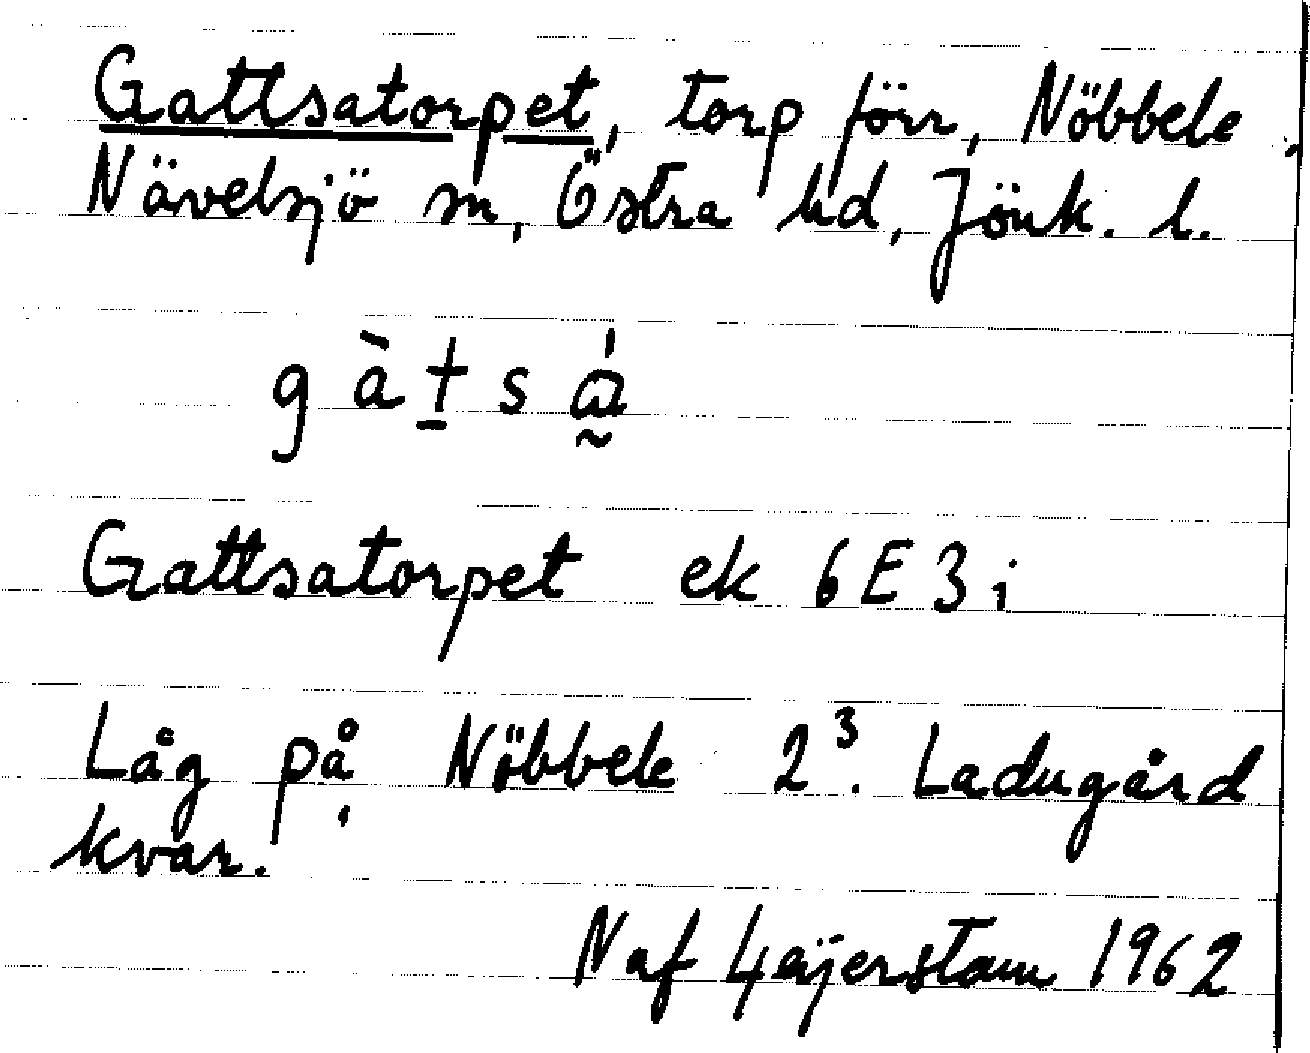 Gattsatorpet, torp förr, Nöbbele,
Nävelsjö sn, Östra hd, Jönk. l.
g à t s a
Gattsatorpet ek 6E3i
Låg på Nöbbele 2³. Ladugård
kvar.
N af Geijerstam 1962